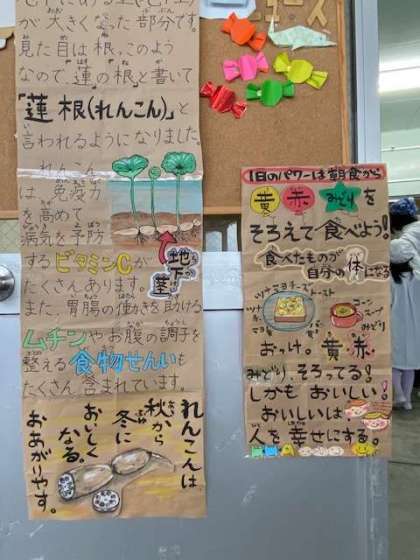 が大きくなった部分です。
見た目は根、このよう
なので、蓮の根と書いて
「蓮根(れんこん)」と
言われるようになりました。
れんこん
は、免疫力
を高めて
病気を予防
するビタミンCが
たくさんあります。
また、胃腸の働きを助ける
ムチンやお腹の調子を
整える食物せんいも
たくさん含まれています。
地下の茎
れんこんは
秋から
冬に
おいしく
なる。
おあがりやす。
1日のパワーは朝食から
黄 赤 みどりを
そろえて食べよう!
食べたものが
自分の体になる
ツナマヨチーズトースト
コーンスープ
みどり
おっけ。黄、赤、
みどり そろってる!
しかも おいしい!
おいしいは
人を幸せにする。